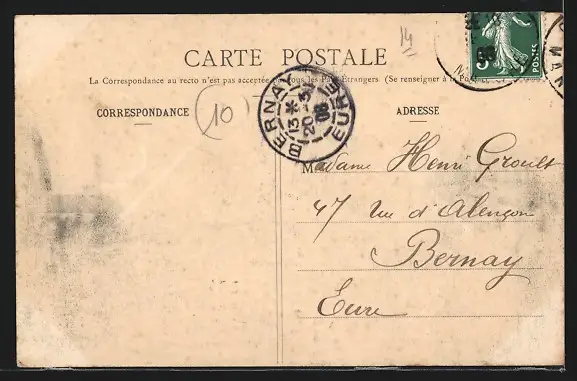 14
CARTE POSTALE
La Correspondance au recto n'est pas acceptée par tous les Pays Étrangers. (Se renseigner à la Poste)
CORRESPONDANCE
10
ADRESSE
BERNAY
13 *
20 - 3
08
EURE
POSTES
MAN
Madame Henri Groult
47 rue d'Alençon
Bernay
Eure